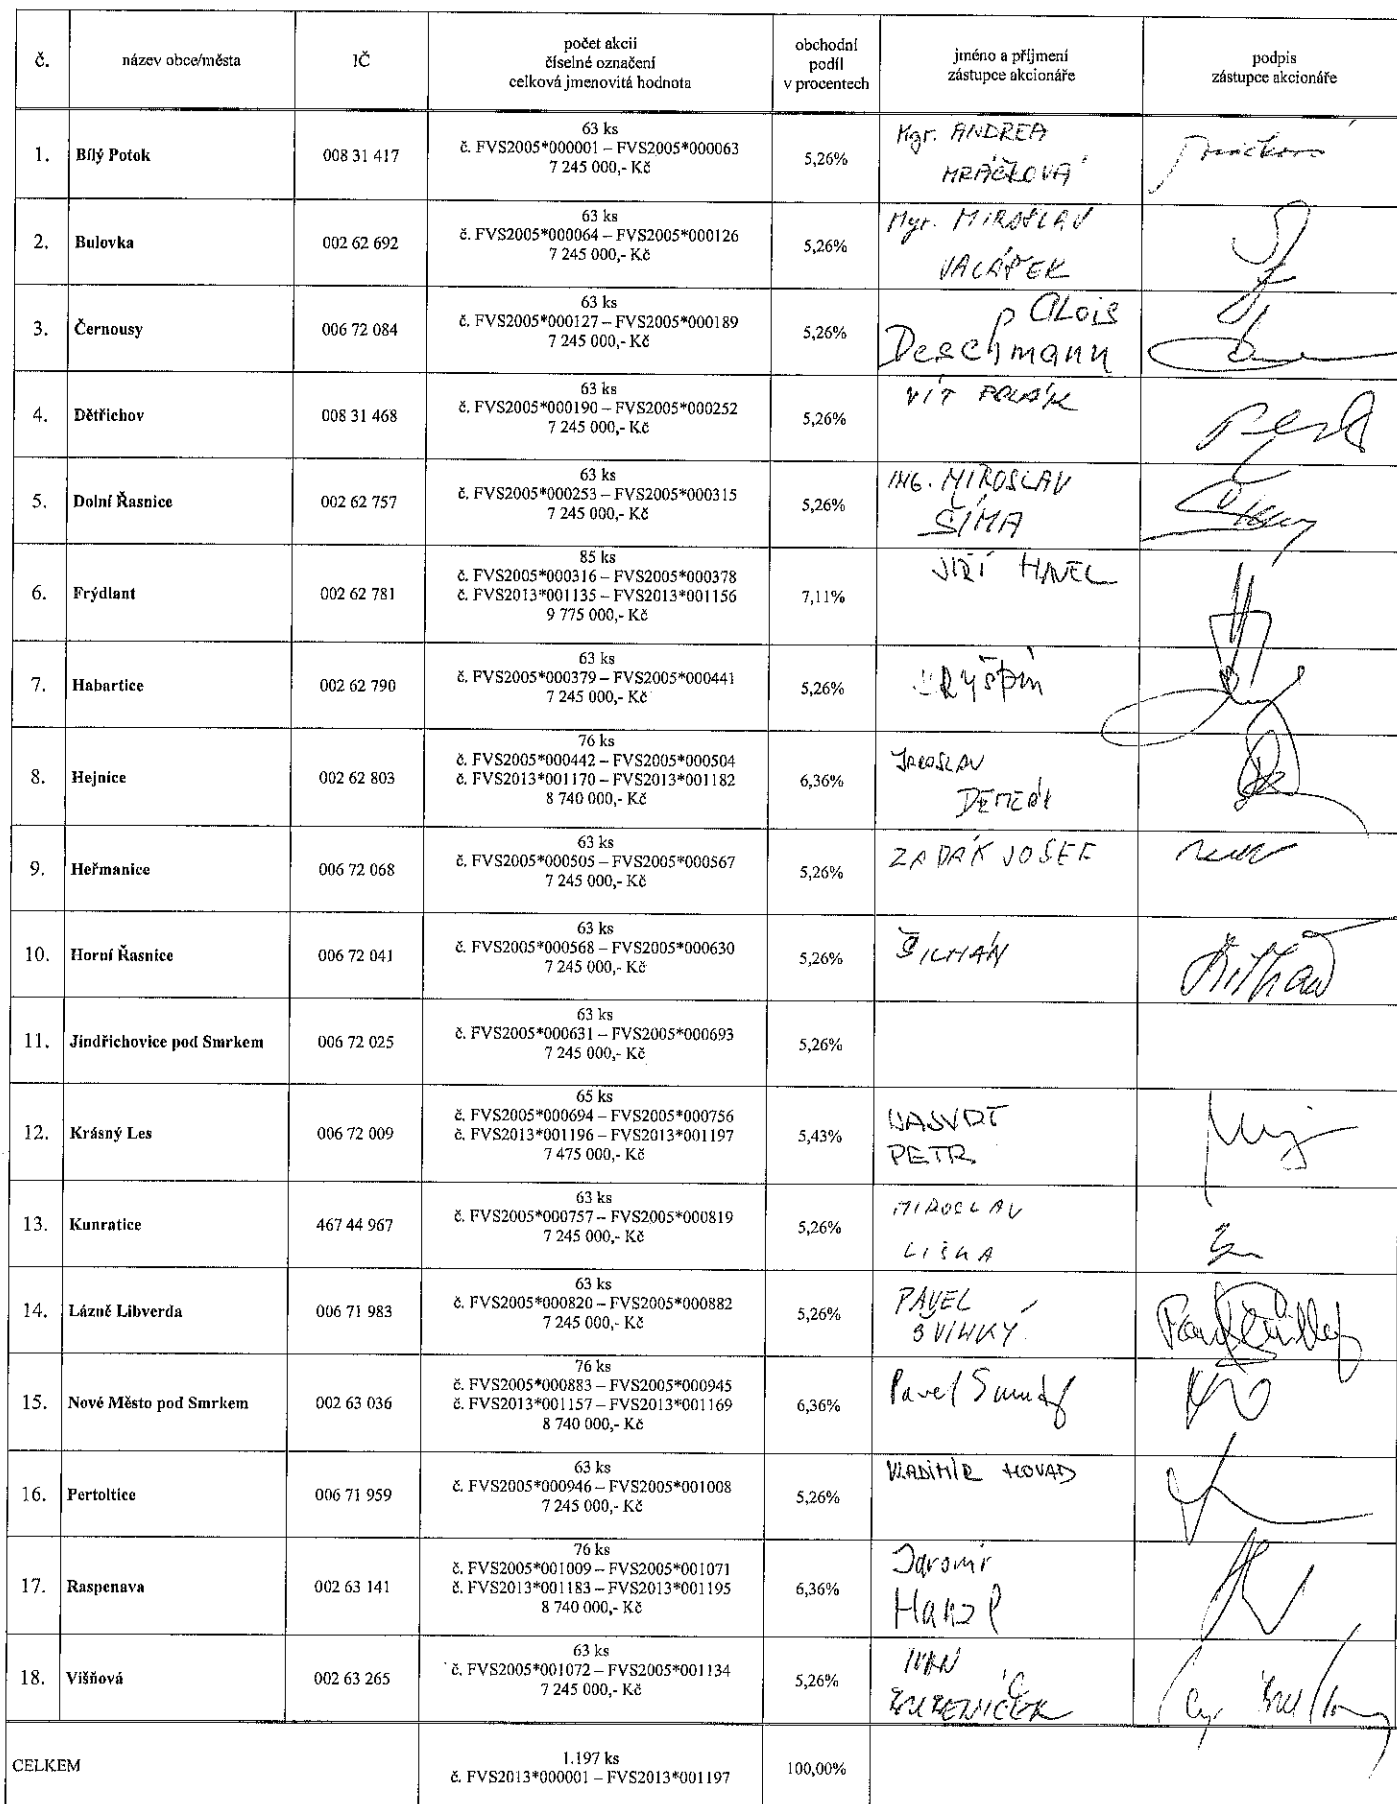 č.
název obce/města
IČ
počet akcií
číselné označení
celková jmenovitá hodnota
obchodní
podíl
v procentech
jméno a příjmení
zástupce akcionáře
podpis
zástupce akcionáře
1.
Bílý Potok
008 31 417
63 ks
č. FVS2005*000001 – FVS2005*000063
7 245 000,- Kč
5,26%
Mgr. ANDREA
MRÁČKOVÁ
2.
Bulovka
002 62 692
63 ks
č. FVS2005*000064 – FVS2005*000126
7 245 000,- Kč
5,26%
Mgr. MIROSLAV
3.
Černousy
006 72 084
63 ks
č. FVS2005*000127 – FVS2005*000189
7 245 000,- Kč
5,26%
p ALois
Deschmann
4.
Dětřichov
008 31 468
63 ks
č. FVS2005*000190 – FVS2005*000252
7 245 000,- Kč
5,26%
VÍT
5.
Dolní Řasnice
002 62 757
63 ks
č. FVS2005*000253 – FVS2005*000315
7 245 000,- Kč
5,26%
ING. MIROSLAV
ŠÍMA
6.
Frýdlant
002 62 781
85 ks
č. FVS2005*000316 – FVS2005*000378
č. FVS2013*001135 – FVS2013*001156
9 775 000,- Kč
7,11%
JIŘÍ HAVEL
7.
Habartice
002 62 790
63 ks
č. FVS2005*000379 – FVS2005*000441
7 245 000,- Kč
5,26%
8.
Hejnice
002 62 803
76 ks
č. FVS2005*000442 – FVS2005*000504
č. FVS2013*001170 – FVS2013*001182
8 740 000,- Kč
6,36%
JAROSLAV
9.
Heřmanice
006 72 068
63 ks
č. FVS2005*000505 – FVS2005*000567
7 245 000,- Kč
5,26%
ZADÁK JOSEF
10.
Horní Řasnice
006 72 041
63 ks
č. FVS2005*000568 – FVS2005*000630
7 245 000,- Kč
5,26%
11.
Jindřichovice pod Smrkem
006 72 025
63 ks
č. FVS2005*000631 – FVS2005*000693
7 245 000,- Kč
5,26%
12.
Krásný Les
006 72 009
65 ks
č. FVS2005*000694 – FVS2005*000756
č. FVS2013*001196 – FVS2013*001197
7 475 000,- Kč
5,43%
PETR
13.
Kunratice
467 44 967
63 ks
č. FVS2005*000757 – FVS2005*000819
7 245 000,- Kč
5,26%
MIROSLAV
LIŠKA
14.
Lázně Libverda
006 71 983
63 ks
č. FVS2005*000820 – FVS2005*000882
7 245 000,- Kč
5,26%
PAVEL
15.
Nové Město pod Smrkem
002 63 036
76 ks
č. FVS2005*000883 – FVS2005*000945
č. FVS2013*001157 – FVS2013*001169
8 740 000,- Kč
6,36%
Pavel
16.
Pertoltice
006 71 959
63 ks
č. FVS2005*000946 – FVS2005*001008
7 245 000,- Kč
5,26%
VLADIMÍR
17.
Raspenava
002 63 141
76 ks
č. FVS2005*001009 – FVS2005*001071
č. FVS2013*001183 – FVS2013*001195
8 740 000,- Kč
6,36%
Jaromír
18.
Višňová
002 63 265
63 ks
č. FVS2005*001072 – FVS2005*001134
7 245 000,- Kč
5,26%
IVAN
CELKEM
1.197 ks
č. FVS2013*000001 – FVS2013*001197
100,00%